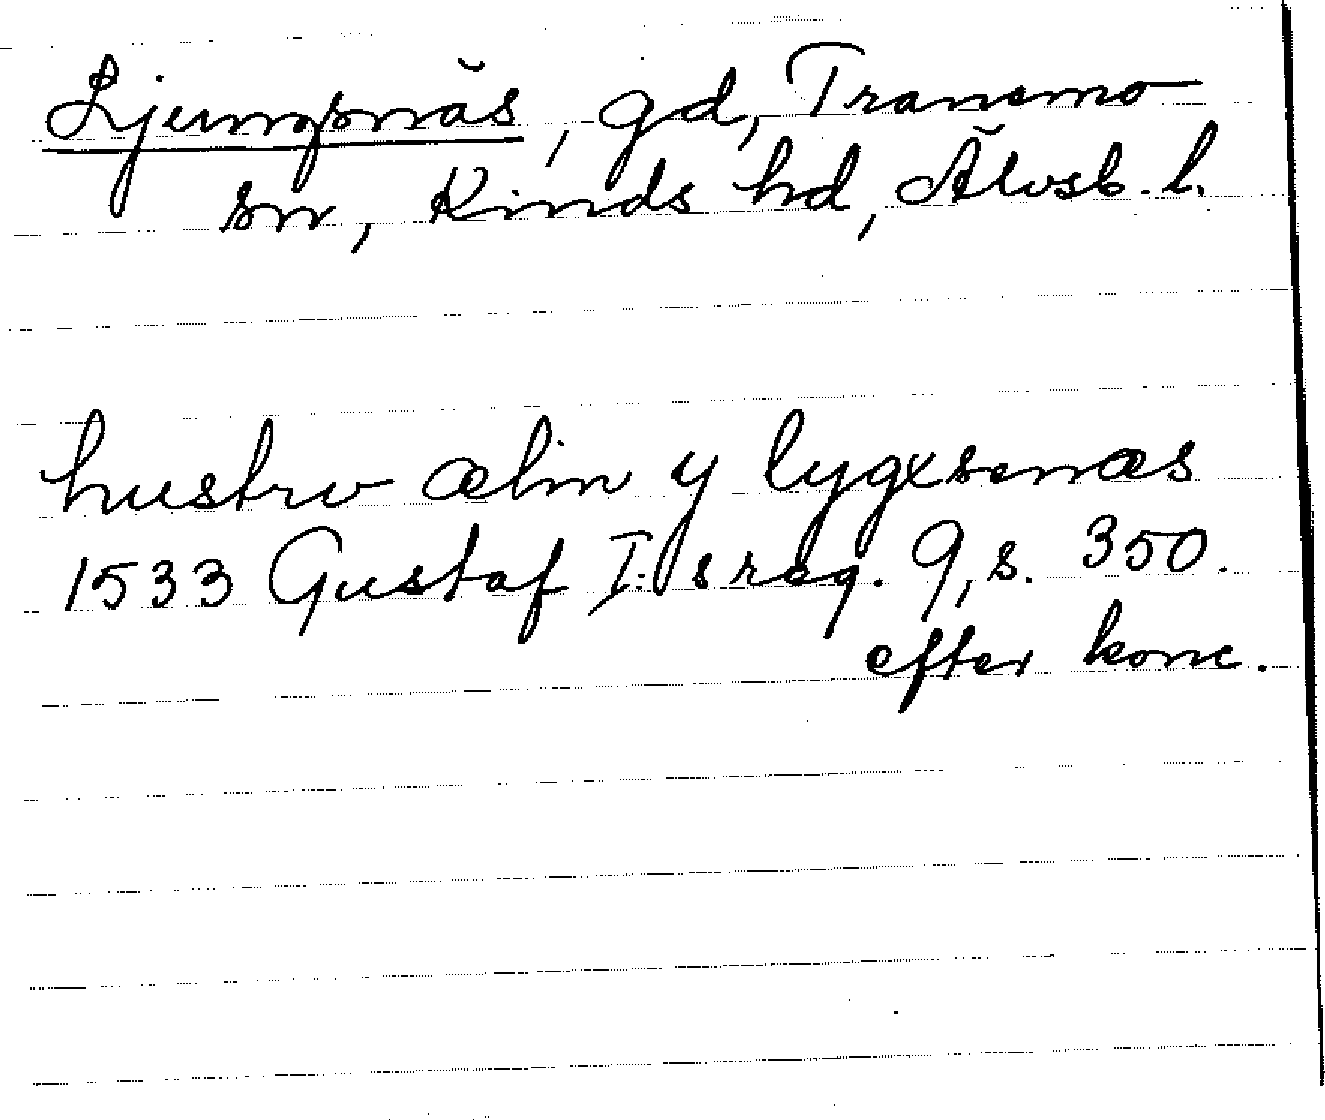 Ljungsnäs, gd, Tranemo
sn, Kinds hd, Älvsb. l.
hustrv ælin y lygxsenæs
1533 Gustaf I:s reg. 9, s. 350.
efter konc.